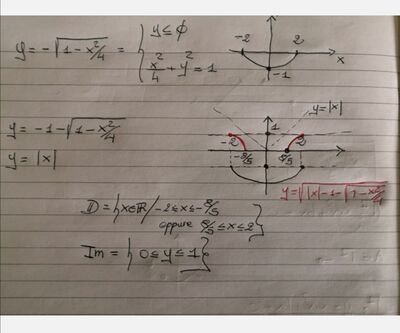 y = -√(1 - x²/4) = { y ≤ 0
x²/4 + y² = 1
-2 2 x
-1
y = -1 - √(1 - x²/4)
y = |x|
y = |x|
1
-2 -8/5 8/5 2
y = √(|x| - 1 - √(1 - x²/4))
D = { x ∈ ℝ / -2 ≤ x ≤ -8/5
oppure 8/5 ≤ x ≤ 2 }
Im = { 0 ≤ y ≤ 1 }